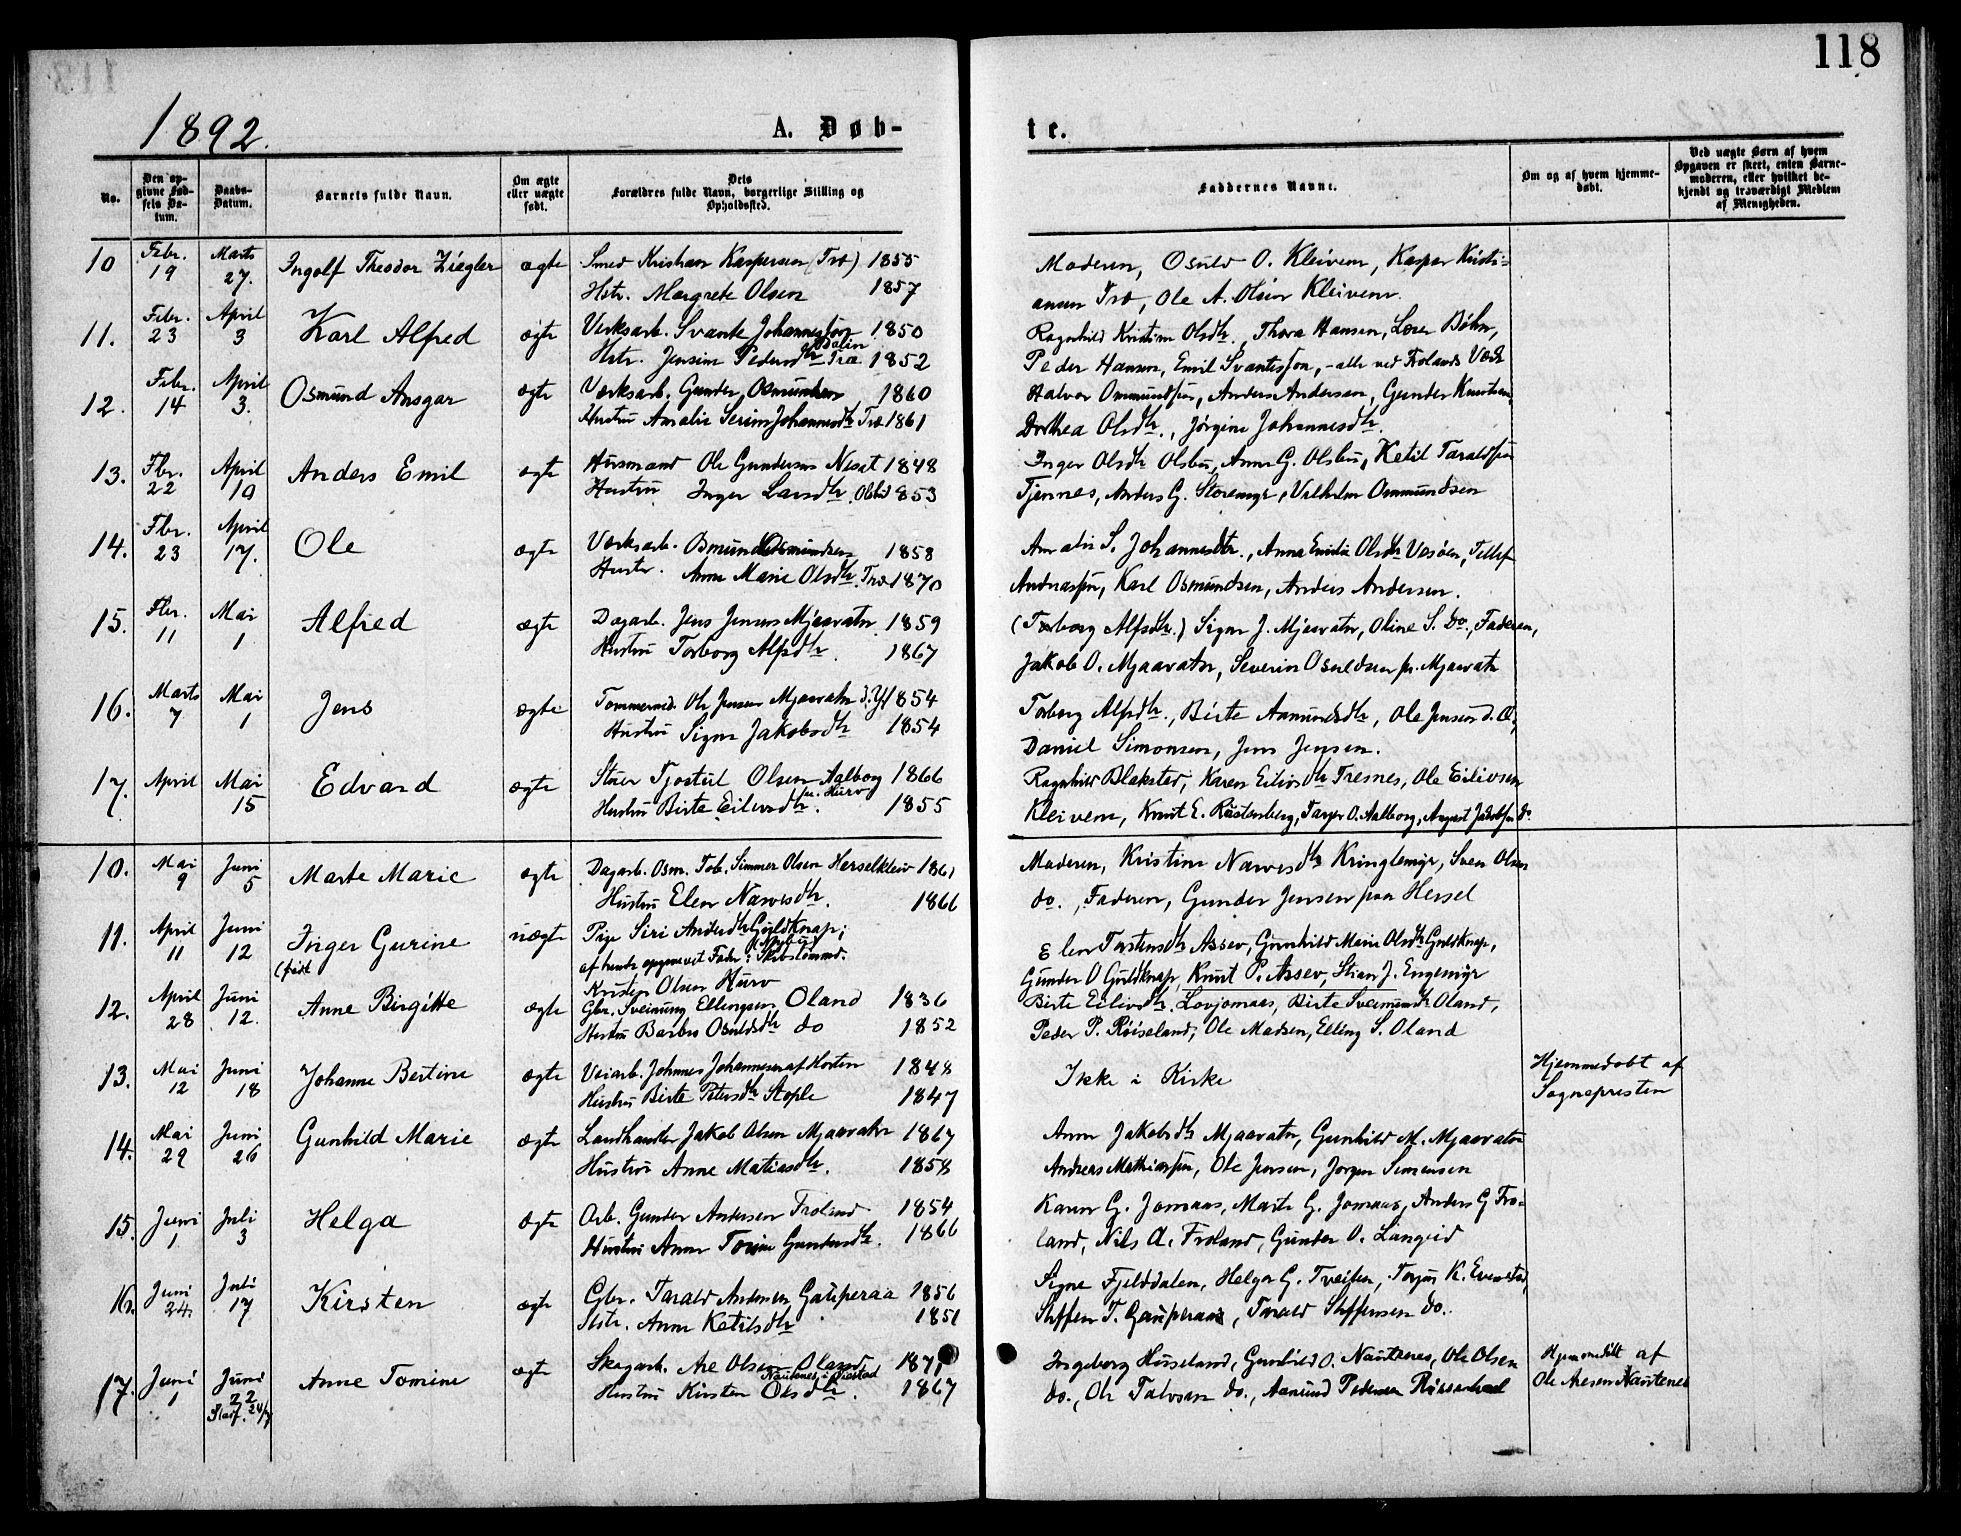 118
1892.
A. Døb-
te.
No.
Den op-
givne Fød-
sels Da-
tum.
Daabs-
Datum.
Barnets fulde Navn.
Om ægte
eller uægte
født.
Dets
Forældres fulde Navn, borgerlige Stilling og
Opholdssted.
Faddernes Navne.
Om og af hvem hjemme-
døbt.
Ved uægte Børn af hvem
Opgaven er skeet, enten Barne-
moderen, eller hvilket be-
kjendt og troværdigt Medlem
af Menigheden.
10 Febr. 19 Marts 27. Ingolf Theodor Ziegler ægte Smed Kristian Kaspersen (Træ) 1855
Hstr. Margrete Olsen 1857
Moderen, Osuld O. Kleiven, Kasper Kristi-
ansen Træ, Ole A. Olsen Kleiven.
11. Febr. 23 April 3 Karl Alfred ægte Verksarb. Svante Johannesson 1850
Dalin
Hstr. Jensine Pedersdtr Træ 1852
Ragnhild Kristine Olsdtr., Thora Hansen, Böhn,
Peder Hansen, Emil Svantesson, - alle ved Frolands Værk
12. Febr. 14 April 3. Osmund Ansgar ægte Værksarb. Gunder Osmundsen 1860
Hustru Amalie Serine Johannesdtr Træ 1861
Halvor Ommundsen, Anders Andersen, Gunder Knutsen,
Dorthea Olsdtr., Jørgine Johannesdtr.
13. Fbr. 22 April 10 Anders Emil ægte Husmand Ole Gundersen 1848
Hustru Inger Larsdtr. Olsbu 1853
Inger Olsdtr Olsbu, Anne G. Olsbu, Ketil Taraldsen
Tjennes, Anders G. Storemyr, Vilhelm Ommundsen
14. Fbr. 23 April 17. Ole ægte Værksarb. Osmund Osmundsen 1858
Hustr. Anne Marie Olsdtr. Træ 1870
Amalie S. Johannesdtr., Anna Emilie Olsdtr Vasöen, Tellef
Andreassen, Karl Osmundsen, Anders Andersen.
15. Fbr. 11 Mai 1 Alfred ægte Dagarb. Jens Jensen Mjaavatn 1859
Hustru Torborg Alfsdtr. 1867
(Torborg Alfsdtr.) Signe J. Mjaavatn, Oline S. Do., Faderen,
Jakob O. Mjaavatn, Severin Osuldsen pr. Mjaavatn
16. Marts 7 Mai 1 Jens ægte Tømmermd. Ole Jensen Mjaavatn d. Y. 1854
Hustru Signe Jakobsdtr 1854
Torborg Alfsdtr., Birte Aamundsdtr, Ole Jensen d. Æ.,
Daniel Simonsen, Jens Jensen.
17. April Mai 15 Edvard ægte Tjostul Olsen Aalborg 1866
pr. Hurv
Hustru Birte Eilevsdtr. 1855
Ragnhild Blakstad, Karen Eilivsdtr Tresnes, Ole Eilivsen
Kleiven, Knut E. Röstenberg, Tarjer O. Aalborg, August Jakobsen do.
10. Mai 9 Juni 5 Marte Marie ægte Dagarb. Osm. Tob. Simmer Olsen Herselkleiv 1861
Hustru Elen Nævesdtr. 1866
Moderen, Kristine Nævesdtr Kringlemyr, Sven Olsen
do., Faderen, Gunder Jensen paa Hersel
11. April 11 Juni 12 Inger Gurine uægte Pige Siri Andersdtr Guldknap;
(født
af hende opgivet Fader: Skibstømmd.
Kristen Olsen Hurv
Elen Torstensdtr Assev, Gunhild Marie Olsdtr Guldknap,
Gunder O Guldknap, Knut P. Assev, Stian J. Engemyr
12. April 28 Juni 12. Anne Birgitte ægte Gbr. Sveinung Ellingsen Oland 1836
Hustru Barbro Osuldsdtr do 1852
Birte Eilivsdtr. Lovjomaas, Birte Sveinungsdtr Oland,
Peder P. Röiseland, Ole Madsen, Elling S. Oland
13. Mai 12 Juni 18 Johanne Bertine ægte Veiarb. Johannes Johannesen af Horten 1848
Hustru Birte Petersdtr Stople 1847
Ikke i Kirke
Hjemmedøbt af
Sognepresten
14. Mai 29 Juni 26 Gunhild Marie ægte Landhandler Jakob Olsen Mjaavatn 1867
Hustru Anne Matiasdtr. 1858
Anne Jakobsdtr Mjaavatn, Gunhild M. Mjaavatn
Andreas Mathiassen, Ole Jensen, Jörgen Simonsen
15. Juni 1 Juli 3 Helga ægte Arb. Gunder Andersen Froland 1854
Hustru Anne Torine Gundersdtr. 1866
Karen G. Jomaas, Marte G. Jomaas, Anders G Fro-
land, Nils A. Froland, Gunder O. Langeid
16. Juni 24. Juli 17 Kirsten ægte Gbr. Tarald Andersen Gauperaa 1856
Hstr. Anne Ketilsdtr 1851
Signe Fjelddalen, Helge G. Tveiten, Torjus K. Evenstad,
Steffen T. Gauperaas, Tarald Steffensen do.
17. Juni 1 Juni 22 Stadf. 24/7 Anne Tomine ægte Skogarb. Are Olsen Oland 1871
Nautenes i Öiestad
Hustru Kirsten Olsdtr. 1867
Ingeborg Huseland, Gunhild O. Nautenes, Ole Olsen
do., Ole Talvsen do., Aamund Pedersen
Hjemmedøbt af
Ole Aresen Nautenes